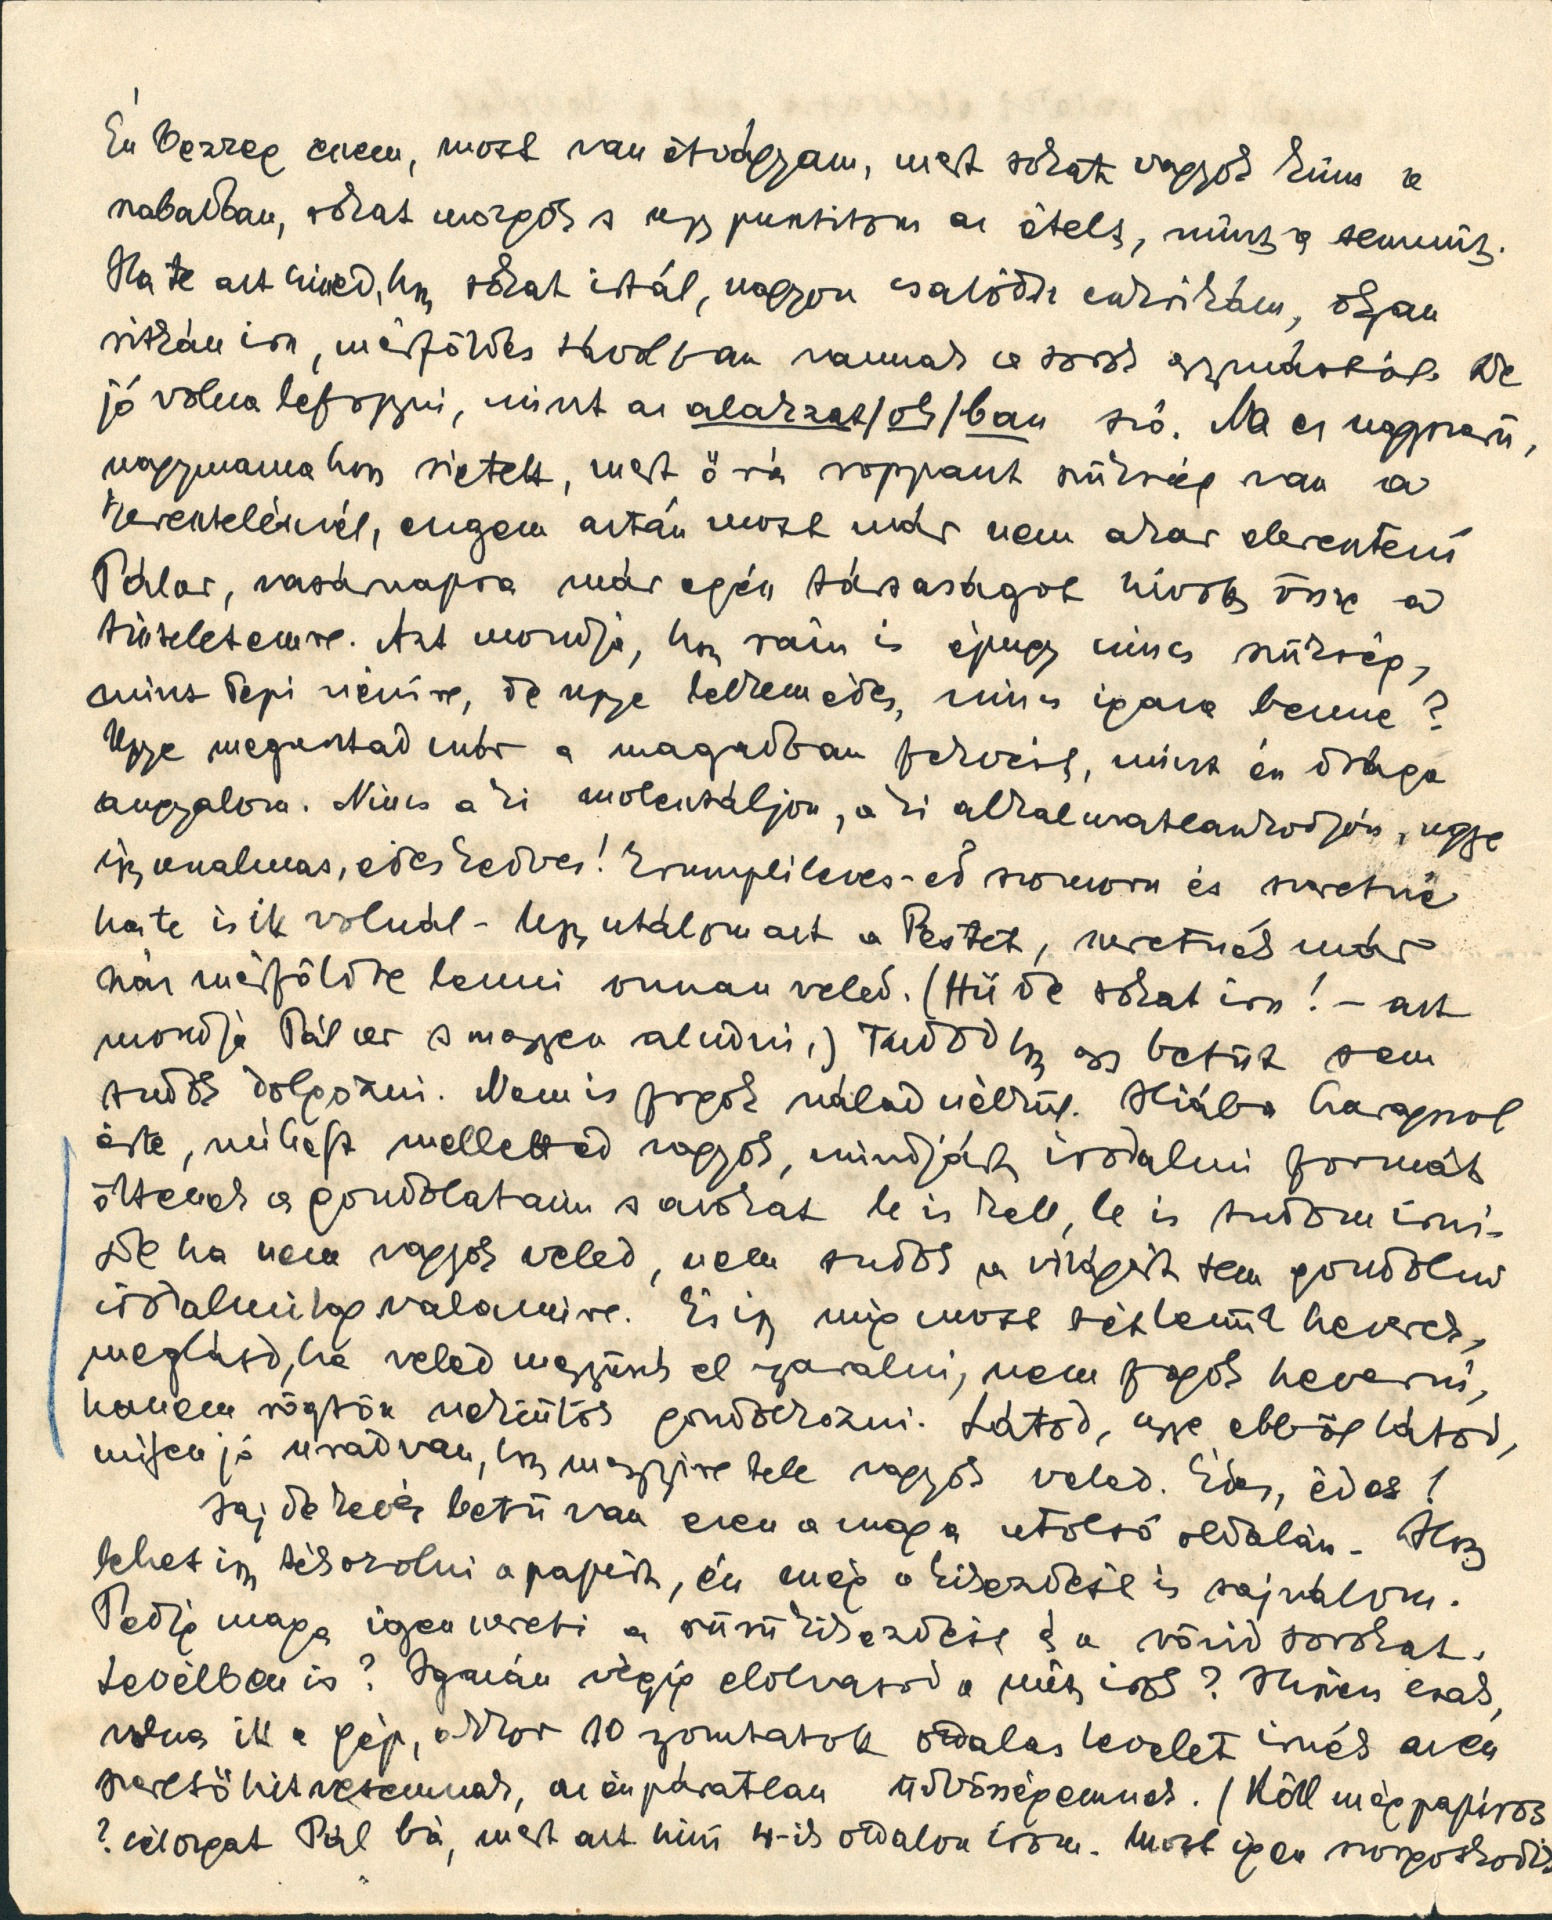 Én bezzeg eszem, most van étvágyam, mert sokat vagyok künn a
szabadban, sokat mozgok s úgy pusztitom az ételt, mint a semmit.
Ha te azt hiszed, hogy sokat irtál, nagyon csalódsz cicám, olyan
ritkán irsz, mérföldes távolban vannak a sorok egymástól. De
jó volna lefogyni, mint az alakzat/ok/ban szó. Na ez nagyszerü,
nagymamahoz sietett, mert ő rá roppant szükség van a
temetésnél, engem aztán most már nem akar elereszteni
Páler, vasárnapra már egész társaságot hivott össze a
tiszteletemre. Azt mondja, hogy rám is épugy nincs szükség,
mint Pepi nénire, de ugye lelkem édes, nincs igaza benne?
Ugye meguntad már a magadban fekvést, mint én drága
angyalom. Nincs a ki molesztáljon, a ki alkalmatlankodjon, ugye
igy unalmas, édes kedves! Krumplileves-ed szomoru és szeretné
ha te is itt volnál - Ugy utálom azt a Pestet, szeretnék már
száz mérföldre lenni onnan veled. (Hü de sokat irsz! - azt
mondja Páler s megyen aludni.) Tudod hogy egy betüt sem
tudok dolgozni. Nem is fogok nálad nélkül. Hiába haragszol
érte, mihelyt melletted vagyok, mindjárt irodalmi formát
öltenek a gondolataim s azokat le is kell, le is tudom irni -
de ha nem vagyok veled, nem tudok a világért sem gondolni
irodalmilag valamire. És igy mig most tétlenül heverek,
meglásd, ha veled megyünk el nyaralni, nem fogok heverni,
hanem rögtön nekiülök gondolkozni. Látod, ugye ebből látod,
milyen jó urad van, hogy mennyire tele vagyok veled. Édes, édes!
Jaj de kevés betü van ezen a maga utolsó oldalán - Hogy
lehet igy tékozolni a papirt, én még a kikezdést is sajnálom.
Pedig maga igen szereti a sürü kikezdést és a rövid sorokat.
Levélben is? Igazán végig elolvasod a mit irok? Hiszen csak
volna itt a gép, akkor 10 nyomtatott oldalas levelet irnék az én
szerető hitvesemnek, az én páratlan üdvösségemnek. (Köll még papiros
? Pál bá, mert azt hiszi 4-ik oldalon irom. Most igen szorgoskodik